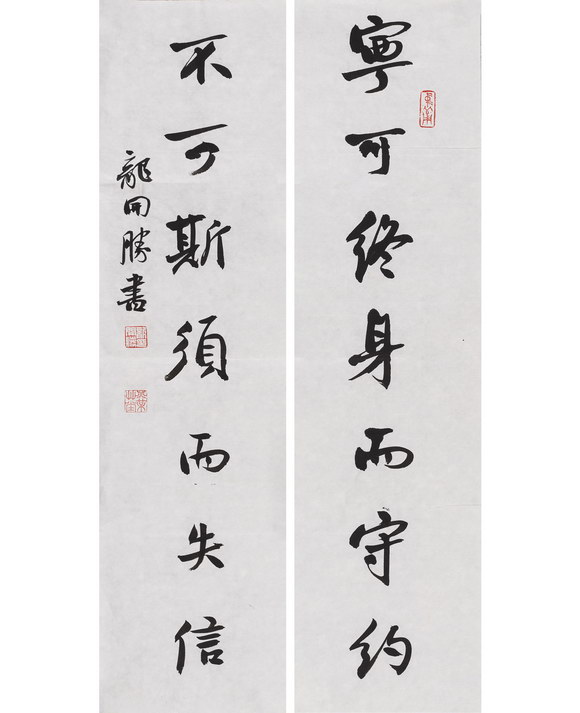 寧可終身而守约
不可斯須而失信
龍開勝書